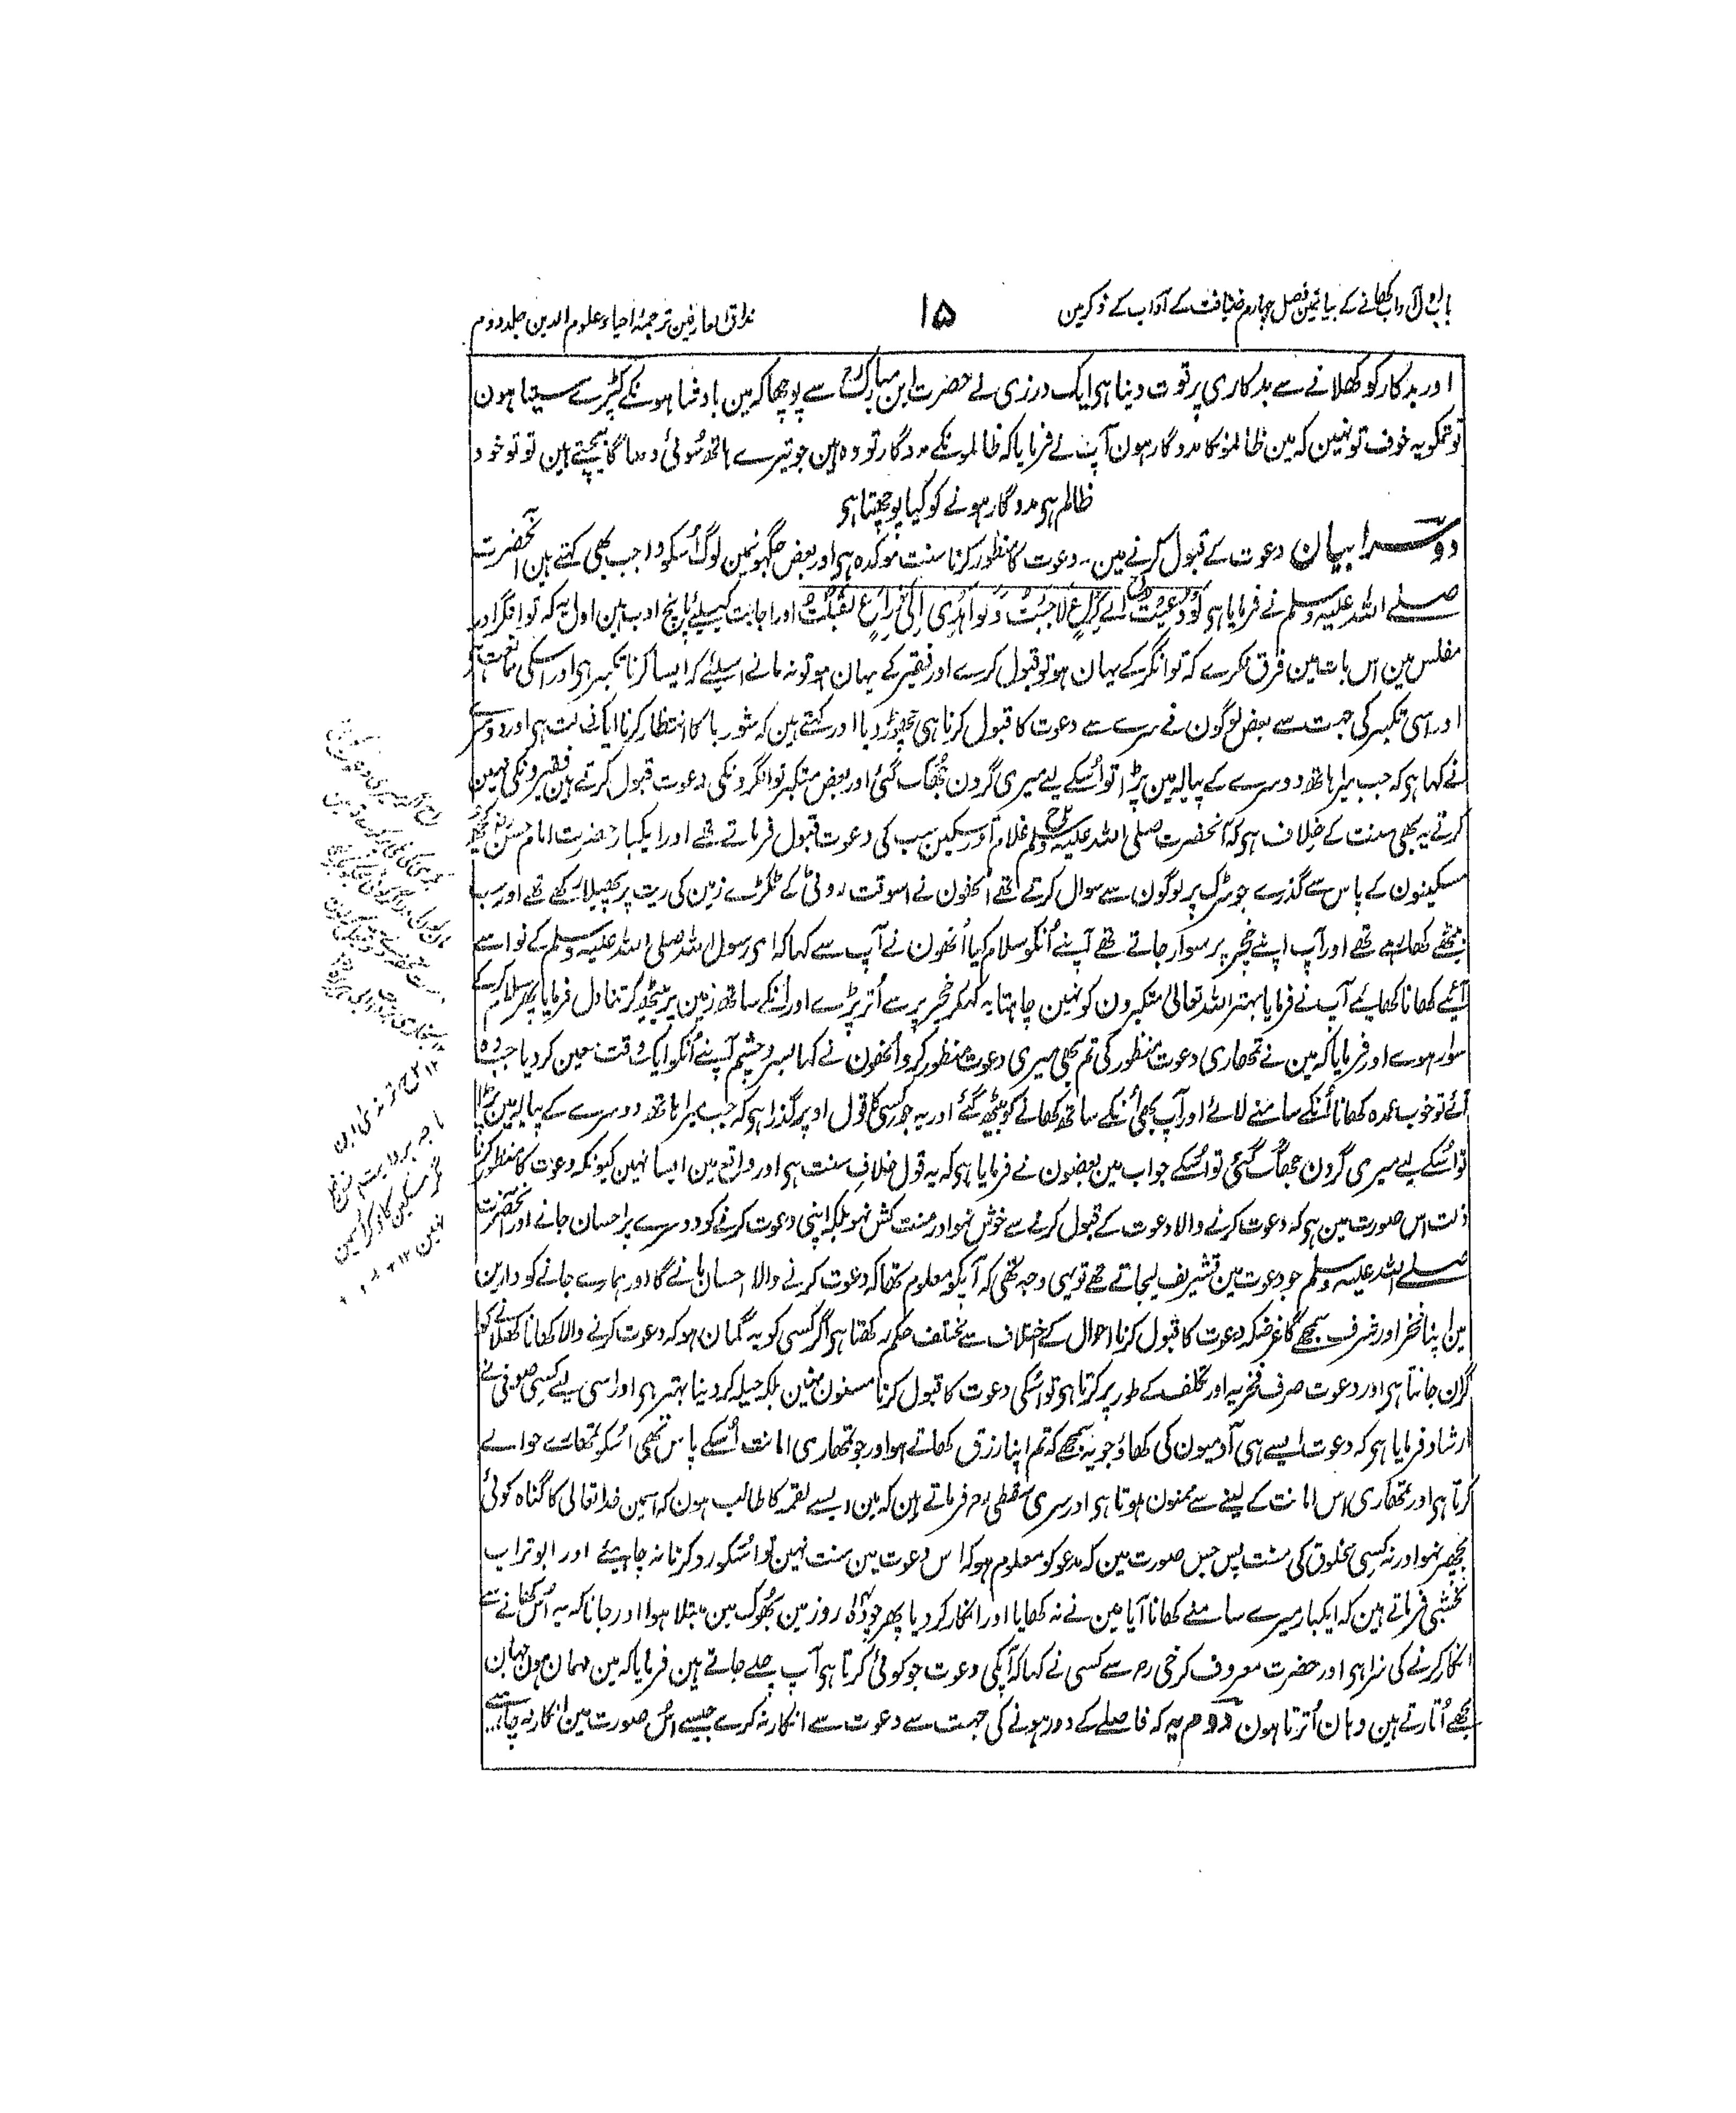 باب اول آداب کھانے کے بیانمین فصل چہارم ضیافت کے آداب کے ذکر مین
۱۵
مذاق العارفین ترجمہ احیاء علوم الدین جلد دوم
اور بدکار کو کھلانے سے بدکاری پر قوت دینا ہی ایک درزی نے حضرت ابن مبارک رح سے پوچھا کہ مین بادشاہونکے کپڑے سیتا ہون
تو تمکو یہ خوف تو نہین کہ مین ظالمونکا مددگار ہون آپ نے فرمایا کہ ظالمونکے مددگار تو وہ ہین جو تیرے ہاتھ سوئی دھاگا بیچتے ہین تو تو خود
ظالم ہی مددگار ہونے کو کیا پوچھتا ہی
دوسرا بیان دعوت کے قبول کرنے مین۔ دعوت کا منظور کرنا سنت موکدہ ہی اور بعض جگہونمین لوگ اُسکو واجب بھی کہتے ہین آنحضرت
صلے اللہ علیہ وسلم نے فرمایا ہی لَوْ دُعِیْتُ اِلٰے کُرَاعٍ لَاَجَبْتُ وَلَوْ اُهْدِیَ اِلَیَّ ذِرَاعٌ لَقَبِلْتُ اور اجابت کیلیے پانچ ادب ہین اول یہ کہ توانگر اور
مفلس مین اس بات مین فرق نکرے کہ توانگر کے یہان ہو تو قبول کرے اور فقیر کے یہان ہو تو نہ مانے اسلیے کہ ایسا کرنا تکبر ہی اور اسکی ممانعت آئی
اور اسی تکبر کی جہت سے بعض لوگون نے سرے سے دعوت کا قبول کرنا ہی چھوڑ دیا اور کہتے ہین کہ شوربا کا انتظار کرنا ایک ذلت ہی اور دوسرے
نے کہا ہی کہ جب میرا ہاتھ دوسرے کے پیالہ مین پڑا تو اُسکے لیے میری گردن جُھک گئی اور بعض متکبر توانگرونکی دعوت قبول کرتے ہین فقیرونکی نہین
کرتے یہ بھی سنت کے خلاف ہی کہ آنحضرت صلی اللہ علیہ وسلم غلام اور مسکین سب کی دعوت قبول فرماتے تھے اور ایکبار حضرت امام حسن رض کچھ
مسکینون کے پاس سے گذرے جو سڑک پر لوگون سے سوال کرتے تھے اُنھون نے اسوقت روٹی کے ٹکڑے زمین کی ریت پر پھیلا رکھے تھے اور سب
بیٹھے کھا رہے تھے اور آپ اپنے خچر پر سوار جاتے تھے آپنے اُنکو سلام کیا اُنھون نے آپ سے کہا کہ ای رسول اللہ صلی اللہ علیہ وسلم کے نواسے
آئیے کھانا کھایئے آپ نے فرمایا بہتر اللہ تعالیٰ متکبرون کو نہین چاہتا یہ کہکر خچر پر سے اُتر پڑے اور اُنکے ساتھ زمین پر بیٹھ کر تناول فرمایا پھر سلام کرکے
سوار ہوے اور فرمایا کہ مین نے تمھاری دعوت منظور کی تم بھی میری دعوت منظور کرو اُنھون نے کہا بسر و چشم آپنے اُنکو ایک وقت معین کر دیا جب وہ
آئے تو خوب عمدہ کھانا اُنکے سامنے لائے اور آپ بھی اُنکے ساتھ کھانے کو بیٹھ گئے اور یہ جو کسی کا قول اوپر گذرا ہی کہ جب میرا ہاتھ دوسرے کے پیالہ مین پڑا
تو اُسکے لیے میری گردن جھک گئی تو اُسکے جواب مین بعضون نے فرمایا ہی کہ یہ قول خلاف سنت ہی اور واقع مین ایسا نہین کیونکہ دعوت کا منظور کرنا
ذلت اس صورت مین ہی کہ دعوت کرنے والا دعوت کے قبول کرنے سے خوش نہو اور منت کش نہو بلکہ اپنی دعوت کرنے کو دوسرے پر احسان جانے اور آنحضرت
صلے اللہ علیہ وسلم جو دعوت مین تشریف لیجاتے تھے تو یہی وجہ تھی کہ آپکو معلوم تھا کہ دعوت کرنے والا احسان مانے گا اور ہمارے جانے کو دارین
مین اپنا فخر اور شرف سمجھے گا غرضکہ دعوت کا قبول کرنا احوال کے اختلاف سے مختلف حکم رکھتا ہی اگر کسی کو یہ گمان ہو کہ دعوت کرنے والا کھانا کھلانے کو
گران جانتا ہی اور دعوت صرف فخریہ اور تکلف کے طور پر کرتا ہی تو اُسکی دعوت کا قبول کرنا مسنون نہین بلکہ حیلہ کر دینا بہتر ہی اور اسی لیے کسی صوفی نے
ارشاد فرمایا ہی کہ دعوت ایسے ہی آدمیون کی کھاؤ جو یہ سمجھے کہ تم اپنا رزق کھاتے ہو اور جو تمھاری امانت اُسکے پاس تھی اُسکو تمھارے حوالے
کرتا ہی اور تمھاری اس امانت کے لینے سے ممنون ہوتا ہی اور سری سقطی رح فرماتے ہین کہ مین ایسے لقمہ کا طالب ہون کہ اسمین خدا تعالی کا گناہ کوئی
مجھپر نہو اور نہ کسی مخلوق کی منت پس جس صورت مین کہ مدعو کو معلوم ہو کہ اس دعوت مین منت نہین تو اُسکو رد کرنا نہ چاہیئے اور ابو تراب
نخشبی فرماتے ہین کہ ایکبار میرے سامنے کھانا آیا مین نے نہ کھایا اور انکار کر دیا پھر چودہ روز مین بھوک مین مبتلا ہوا اور جانا کہ یہ اُس کھانے سے
انکار کرنے کی سزا ہی اور حضرت معروف کرخی رح سے کسی نے کہا کہ آپکی دعوت جو کوئی کرتا ہی آپ چلے جاتے ہین فرمایا کہ مین مہمان ہون جہان
مجھے اُتارتے ہین وہان اُترتا ہون دوم یہ کہ فاصلے کے دور ہونے کی جہت سے دعوت سے انکار نہ کرے جیسے اُس صورت مین انکار نہ چاہیے
۱۲ ح ترمذی ابن
ماجہ بروایت
مگر مسکین کا ذکر اسمین
نہین ۱۲